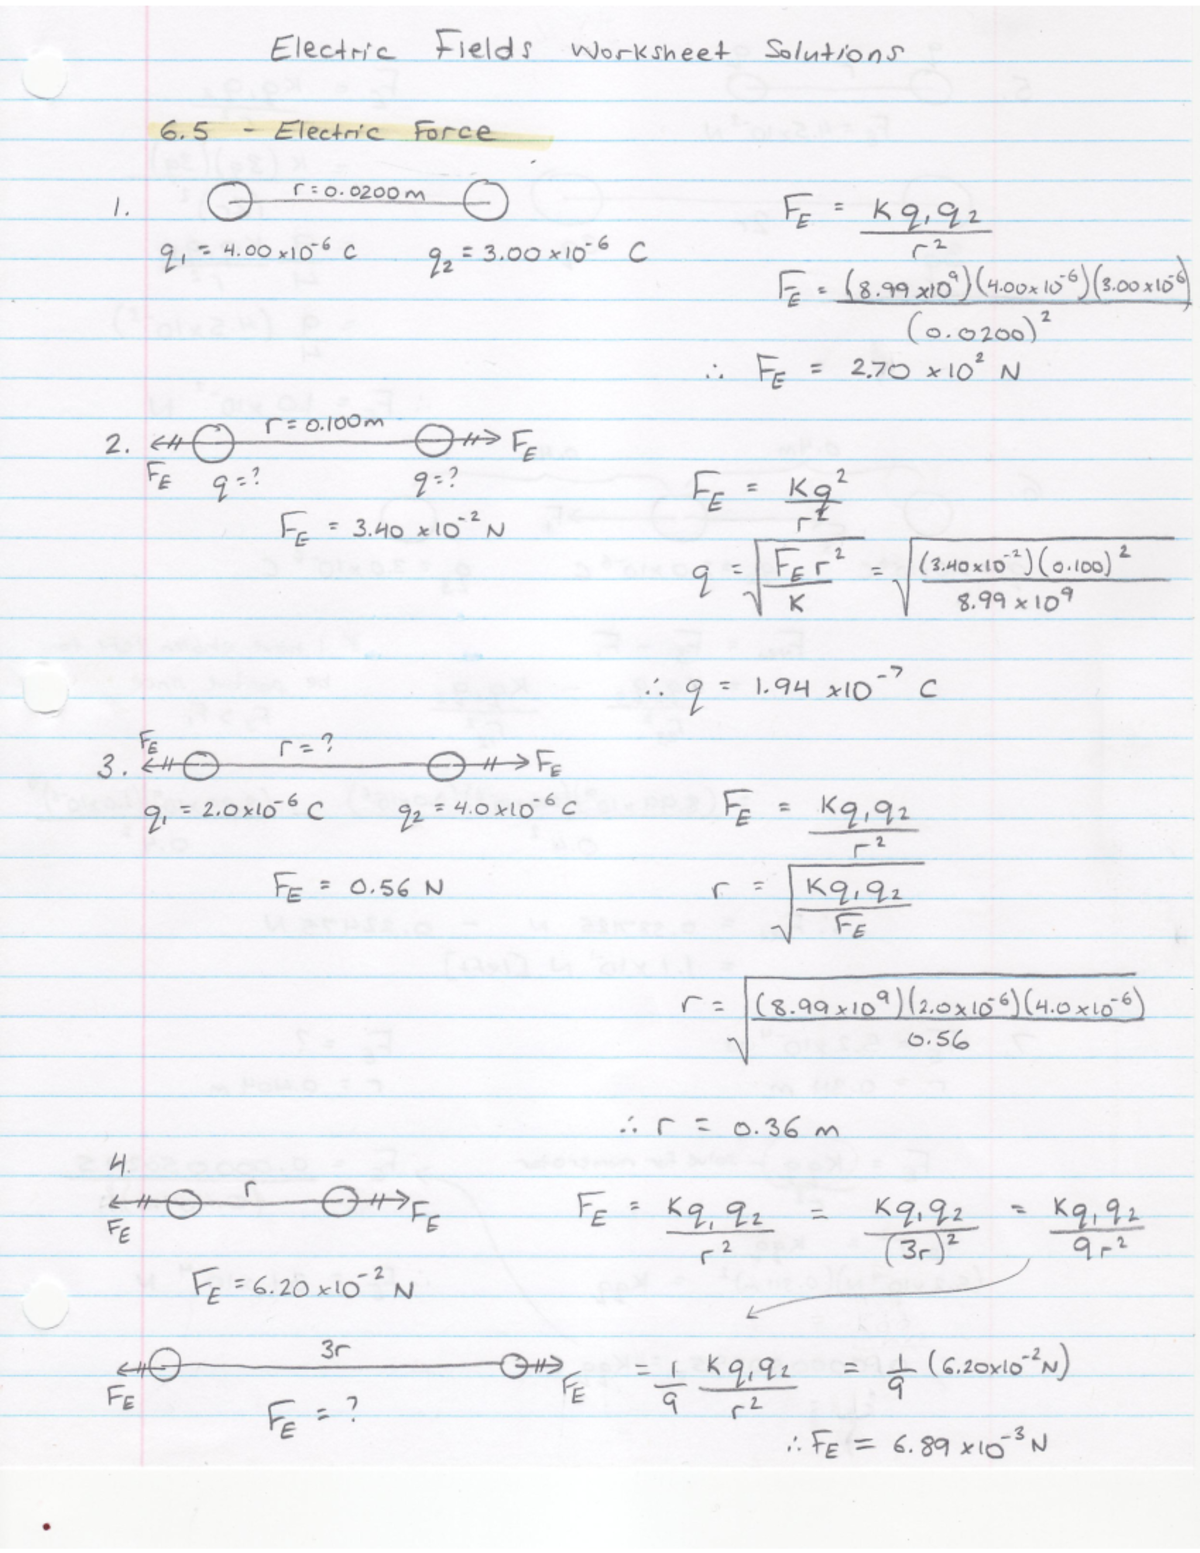 Electric Fields Worksheet Solutions
6.5 - Electric Force
1. r = 0.0200 m
q₁ = 4.00 x10⁻⁶ C q₂ = 3.00 x10⁻⁶ C
F_E = Kq₁q₂ / r²
F_E = (8.99 x10⁹)(4.00x10⁻⁶)(3.00x10⁻⁶) / (0.0200)²
∴ F_E = 2.70 x10² N
2. r = 0.100m
F_E
F_E q=? q=?
F_E = 3.40 x10⁻² N
F_E = Kq² / r²
q = √(F_E r² / K) = √((3.40x10⁻²)(0.100)² / 8.99 x10⁹)
∴ q = 1.94 x10⁻⁷ C
3. F_E r = ? F_E
q₁ = 2.0x10⁻⁶ C q₂ = 4.0x10⁻⁶ C
F_E = 0.56 N
F_E = Kq₁q₂ / r²
r = √(Kq₁q₂ / F_E)
r = √((8.99 x10⁹)(2.0x10⁻⁶)(4.0x10⁻⁶) / 0.56)
∴ r = 0.36 m
4.
r
F_E F_E
F_E = 6.20 x10⁻² N
F_E = Kq₁q₂ / r² = Kq₁q₂ / (3r)² = Kq₁q₂ / 9r²
3r
F_E F_E
F_E = ?
= 1/9 Kq₁q₂ / r² = 1/9 (6.20x10⁻² N)
∴ F_E = 6.89 x10⁻³ N